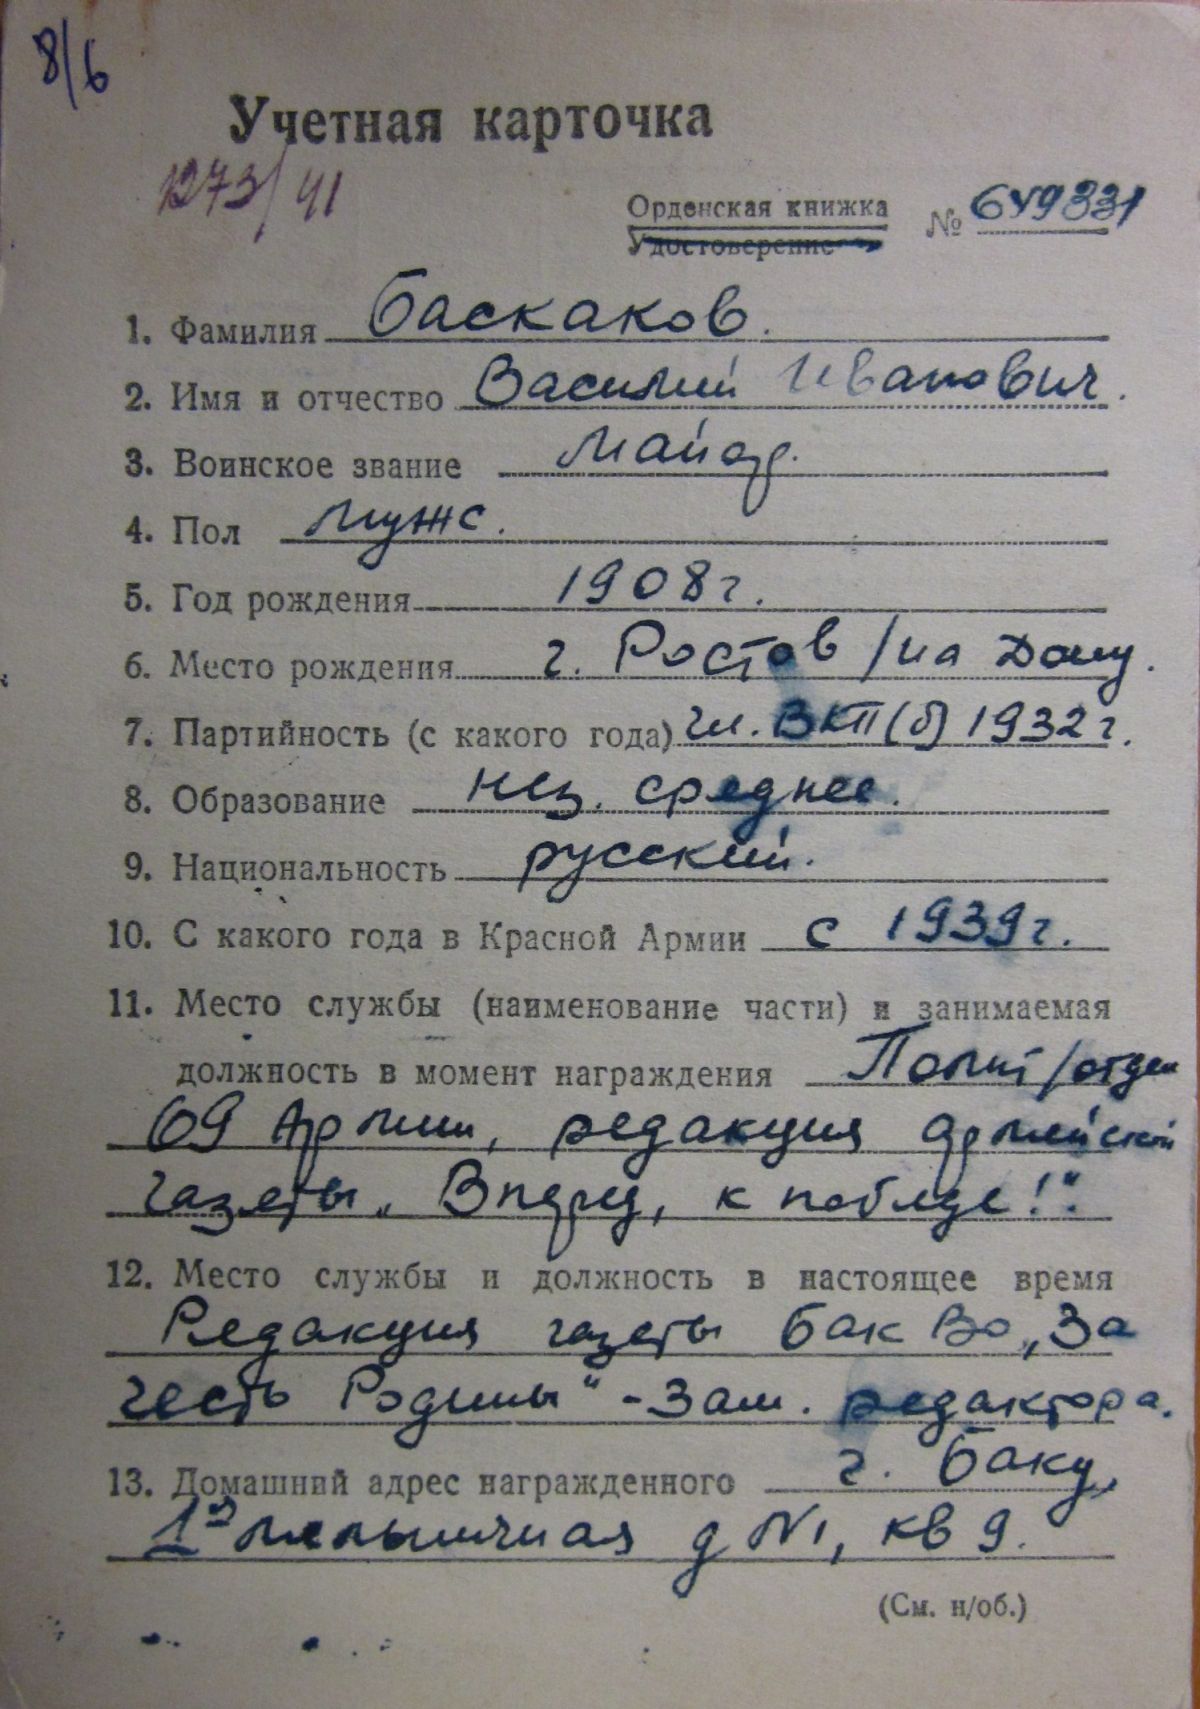 8/6
Учетная карточка
1273/41
Орденская книжка
Удостоверение
№ 649331
1. Фамилия Баскаков.
2. Имя и отчество Василий Иванович.
3. Воинское звание Майор.
4. Пол Мужс.
5. Год рождения 1908 г.
6. Место рождения г. Ростов /на Дону.
7. Партийность (с какого года) чл. ВКП(б) 1932 г.
8. Образование нез. среднее.
9. Национальность русский.
10. С какого года в Красной Армии с 1939 г.
11. Место службы (наименование части) и занимаемая
должность в момент награждения Полит/отдел
69 Армии, редакция армейской
газеты „Вперед, к победе!".
12. Место службы и должность в настоящее время
Редакция газеты БакВо „За
честь Родины" - Зам. редактора.
13. Домашний адрес награжденного г. Баку,
1ая мельничная д №1, кв 9.
(См. н/об.)